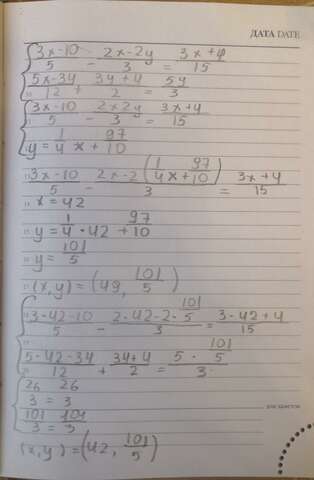 ДАТА DATE
{ (3x-10)/5 - (2x-2y)/3 = (3x+4)/15
{ (5x-34)/12 + (34+4)/2 = 5y/3
{ (3x-10)/5 - (2x2y)/3 = (3x+4)/15
{ y = 1/4 x + 97/10
(3x-10)/5 - (2x-2(1/4 x + 97/10))/3 = (3x+4)/15
x = 42
y = 1/4 · 42 + 97/10
y = 101/5
(x,y) = (49, 101/5)
{ (3-42-10)/5 - (2·42-2·101/5)/3 = (3-42+4)/15
{ (5·42-34)/12 + (34+4)/2 = (5·101/5)/3
{ 26/3 = 26/3
{ 101/3 = 101/3
(x,y) = (42, 101/5)